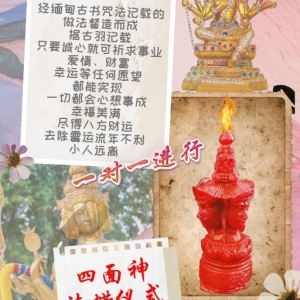 经缅甸古书咒法记载的
做法督造而成
据古羽记载
只要诚心就可祈求事业
爱情、财富
幸运等任何愿望
都能实现
一切都会心想事成
幸福美满
尽得八方财运
去除霉运流年不利
小人远离
一对一进行
四面神
法蜡仪式